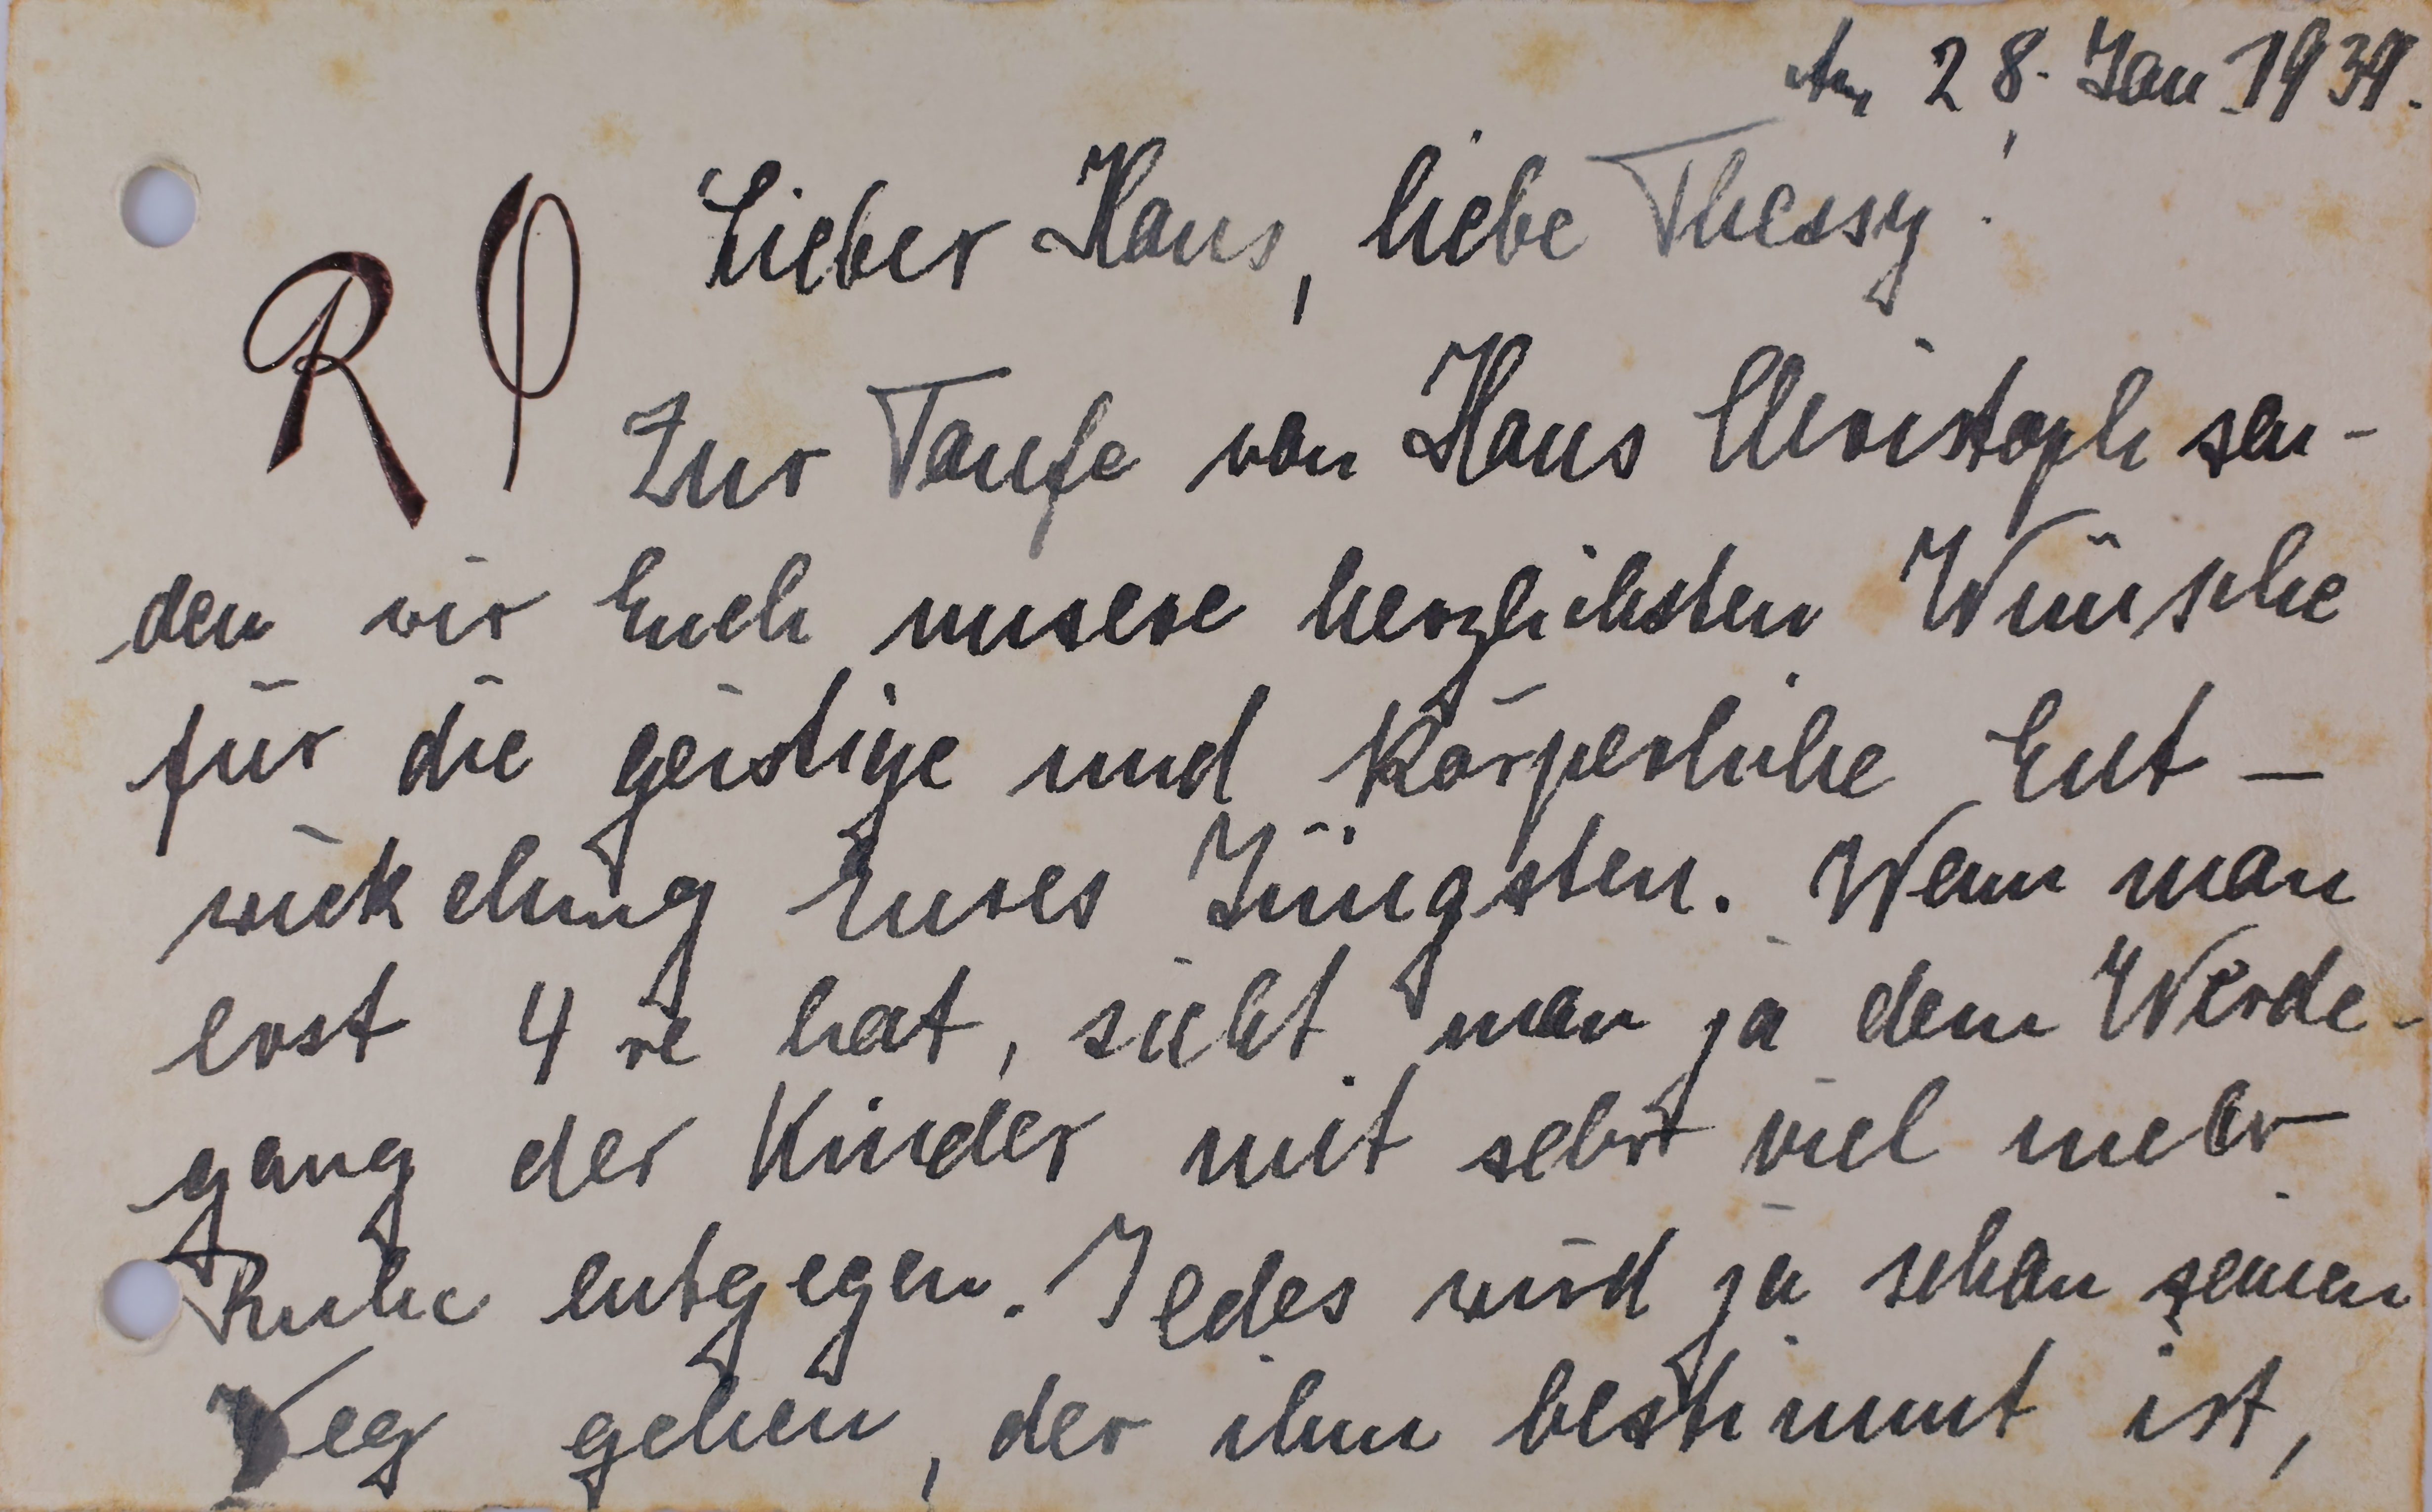 Am 28. Jan 1939.
Lieber Hans, liebe Thessy!
R
Zur Taufe von Hans Christoph sen-
den wir Euch unsere herzlichsten Wünsche
für die geistige und körperliche Ent-
wickelung Eures Jüngsten. Wenn man
erst 4 re hat, sieht man ja dem Werde-
gang der Kinder mit sehr viel mehr
Ruhe entgegen. Jedes wird ja schon seinen
Weg gehen, der ihm bestimmt ist,